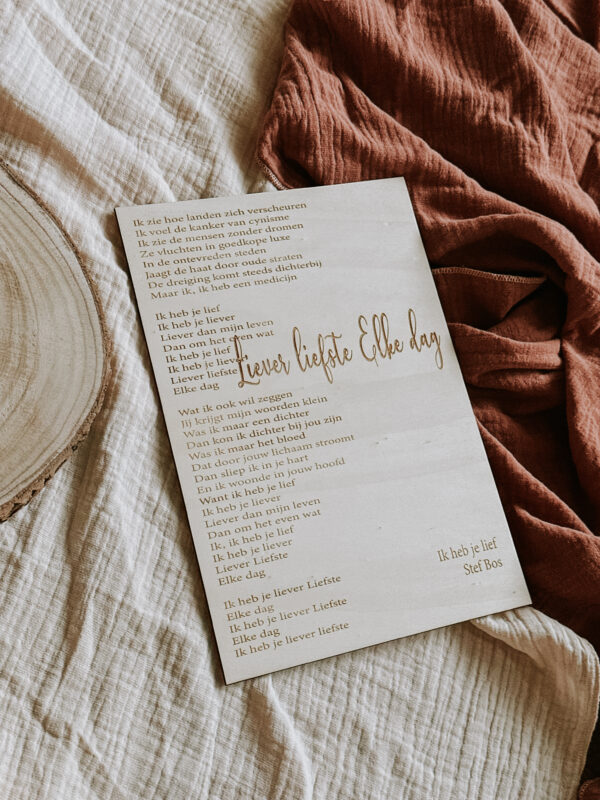 Ik zie hoe landen zich verscheuren
Ik voel de kanker van cynisme
Ik zie de mensen zonder dromen
Ze vluchten in goedkope luxe
In de ontevreden steden
Jaagt de haat door oude straten
De dreiging komt steeds dichterbij
Maar ik, ik heb een medicijn
Ik heb je lief
Ik heb je liever
Liever dan mijn leven
Dan om het even wat
Ik heb je lief
Ik heb je liever
Liever liefste
Elke dag
Liever liefste Elke dag
Wat ik ook wil zeggen
Jij krijgt mijn woorden klein
Was ik maar een dichter
Dan kon ik dichter bij jou zijn
Was ik maar het bloed
Dat door jouw lichaam stroomt
Dan sliep ik in je hart
En ik woonde in jouw hoofd
Want ik heb je lief
Ik heb je liever
Liever dan mijn leven
Dan om het even wat
Ik, ik heb je lief
Ik heb je liever
Liever Liefste
Elke dag
Ik heb je liever Liefste
Elke dag
Ik heb je liever Liefste
Elke dag
Ik heb je liever liefste
Ik heb je lief
Stef Bos